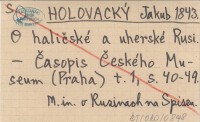 S HOLOVACKÝ Jakub 1843.
O haličské a uherské Rusi.
– Časopis Českého Mu-
seum (Praha) t. 1, s. 40-49.
M. in. o Rusinach na Spiszu.